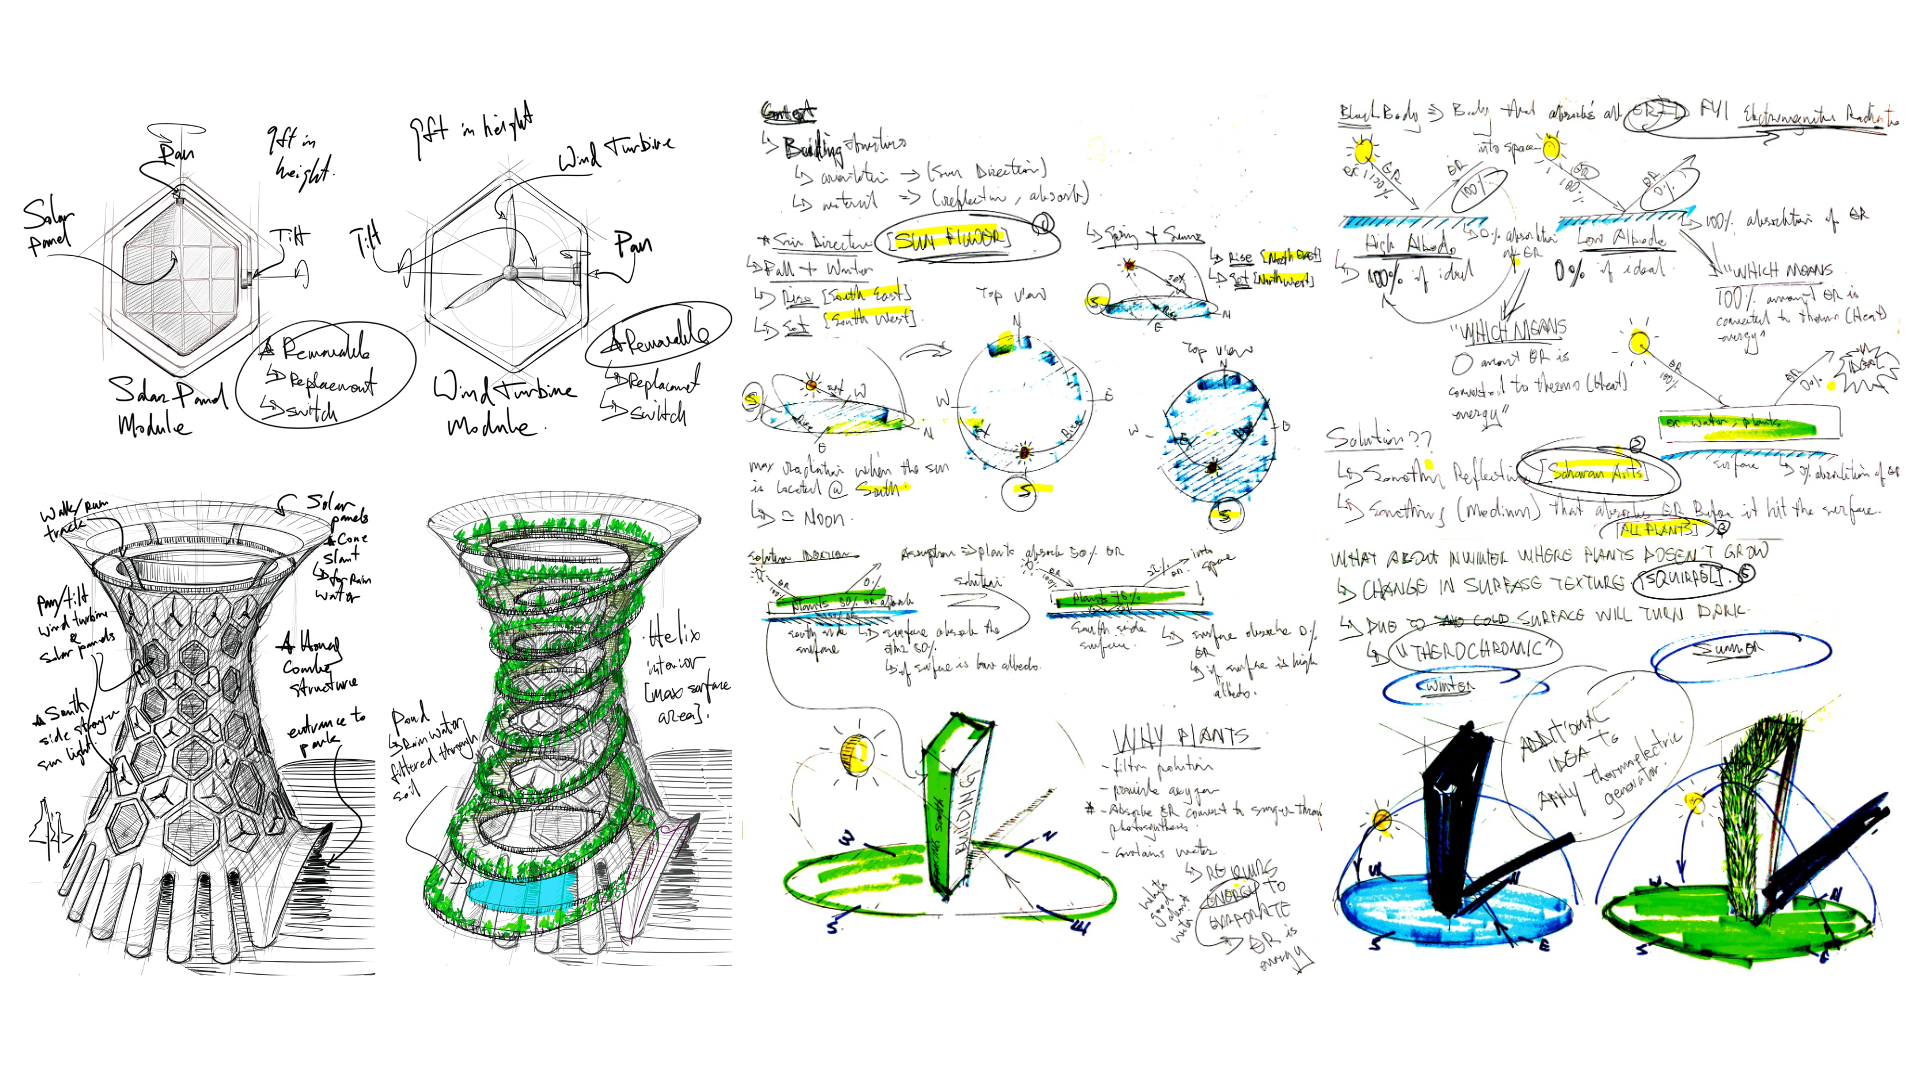 Pan
9ft in
height.
Solar
panel
Tilt
★ Removable
↳ Replacement
↳ Switch
Solar Panel
Module
9ft in height
Wind Turbine
Tilt
Pan
★ Removable
↳ Replacement
↳ Switch
Wind Turbine
Module.
Solar
panels
★ Cone
slant
↳ for Rain
water
Pan/tilt
wind turbine
&
solar panels
★ Honey
Comb
structure
★ South
side stronger
sun light
entrance to
park
Helix
interior
[max surface
area].
Pond
↳ Rain water
filtered through
soil
Context
↳ Building structures
↳ orientation → (Sun Direction)
↳ material ⇒ (reflection, absorb)
★ Sun Direction [SUN FLOWER] 1
↳ Fall + Winter
↳ Rise [South East]
↳ Set [South West]
↳ Spring + Summer
↳ Rise [North East]
↳ Set [North West]
Top view
N
W
E
S
S
W
N
E
Rise
Set
S
N
E
Top view
N
W
E
S
max radiation when the sun
is located @ South.
↳ ≃ Noon.
Assumption ⇒ plants absorb 50% ER
solution
into
space
ER
0%
plants 50% ER absorb
south side
surface
↳ surface absorb the
other 50%
↳ if surface is low albedo.
ER
100%
plants 70%
south side
surface.
↳ surface absorbe 0%
ER
↳ if surface is high
albedo.
BUILDING
South
W
N
S
WHY PLANTS
- filter polution
- provide oxygen
★ - Absorbe ER convert to sugar through
photosynthesis.
- Contains water
↳ REQUIRES
ENERGY TO
EVAPORATE
→ ER is
energy
Whats
good
about
water
Black Body ⇒ Body that absorbs all ER FYI Electromagnetic Radiation
into space
ER 100%
ER
100%
High Albedo
↳ 100% if ideal
↳ 0% absorbtion
of ER
"WHICH MEANS
0 amount ER is
converted to thermo (Heat)
energy"
ER
100%
ER
0%
Low Albedo
0% if ideal
↳ 100% absorbtion of ER
"WHICH MEANS
100% amount ER is
converted to thermo (Heat)
energy"
ER
100%
ER
0%
IDEAL
ex: water, plants
surface
↳ 0% absorbtion of ER
Solution??
↳ Something Reflective [Saharan Ants] 2
↳ Something (medium) that absorbes ER Before it hit the surface.
[ALL PLANTS]
WHAT ABOUT IN WINTER WHERE PLANTS DOSEN'T GROW
↳ CHANGE IN SURFASE TEXTURE [SQUIRREL].
↳ DUE TO COLD SURFACE WILL TURN DARK.
↳ "THEROCHROMIC"
Winter
Summer
ADDITIONAL
IDEA IS
APPLY thermoelectric
generator.
W
N
S
E
W
N
S